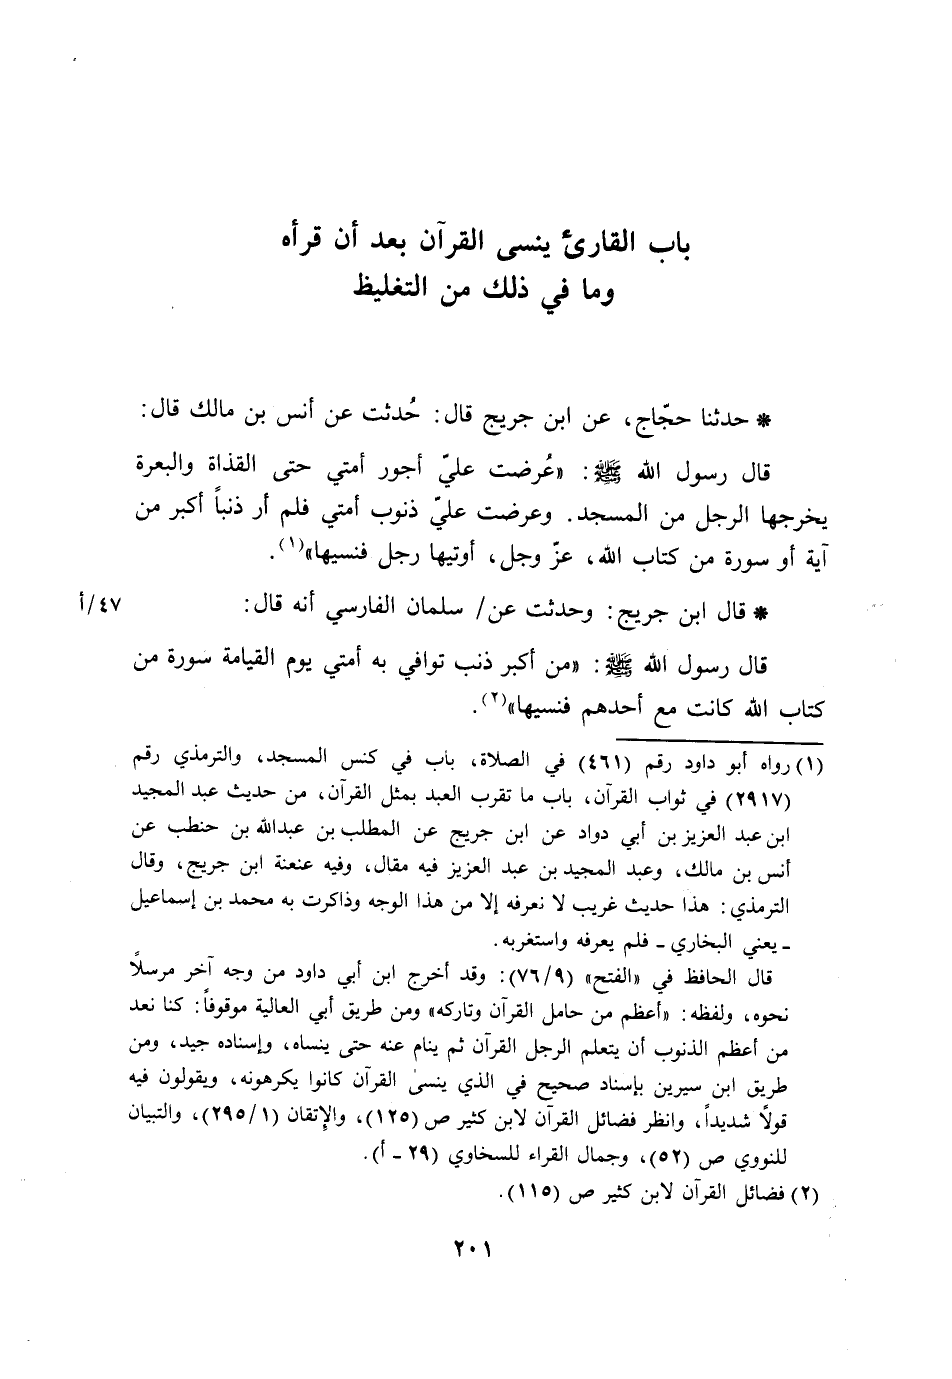 باب القارئ ينسى القرآن بعد أن قرأه
وما في ذلك من التغليظ
* حدثنا حجّاج، عن ابن جريج قال: حُدثت عن أنس بن مالك قال:
قال رسول الله ﷺ: «عُرضت عليّ أجور أمتي حتى القذاة والبعرة
يخرجها الرجل من المسجد. وعرضت عليّ ذنوب أمتي فلم أر ذنباً أكبر من
آية أو سورة من كتاب الله، عزّ وجل، أوتيها رجل فنسيها»(١).
* قال ابن جريج: وحدثت عن/ سلمان الفارسي أنه قال: ٤٧/أ
قال رسول الله ﷺ: «من أكبر ذنب توافي به أمتي يوم القيامة سورة من
كتاب الله كانت مع أحدهم فنسيها»(٢).
(١) رواه أبو داود رقم (٤٦١) في الصلاة، باب في كنس المسجد، والترمذي رقم
(٢٩١٧) في ثواب القرآن، باب ما تقرب العبد بمثل القرآن، من حديث عبد المجيد
ابن عبد العزيز بن أبي دواد عن ابن جريج عن المطلب بن عبدالله بن حنطب عن
أنس بن مالك، وعبد المجيد بن عبد العزيز فيه مقال، وفيه عنعنة ابن جريج، وقال
الترمذي: هذا حديث غريب لا نعرفه إلا من هذا الوجه وذاكرت به محمد بن إسماعيل
ـ يعني البخاري ـ فلم يعرفه واستغربه.
قال الحافظ في «الفتح» (٧٦/٩): وقد أخرج ابن أبي داود من وجه آخر مرسلاً
نحوه، ولفظه: «أعظم من حامل القرآن وتاركه» ومن طريق أبي العالية موقوفاً: كنا نعد
من أعظم الذنوب أن يتعلم الرجل القرآن ثم ينام عنه حتى ينساه، وإسناده جيد، ومن
طريق ابن سيرين بإسناد صحيح في الذي ينسىٰ القرآن كانوا يكرهونه، ويقولون فيه
قولاً شديداً، وانظر فضائل القرآن لابن كثير ص (١٢٥)، والإتقان (٢٩٥/١)، والتبيان
للنووي ص (٥٢)، وجمال القراء للسخاوي (٢٩ ـ أ).
(٢) فضائل القرآن لابن كثير ص (١١٥).
٢٠١